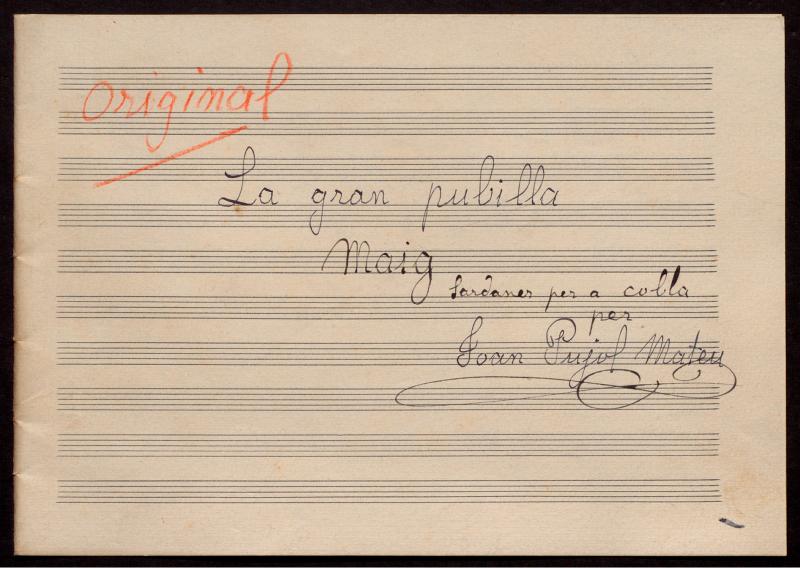 Original
La gran pubilla
Maig
Sardanes per a cobla
per
Joan Pujol Mateu